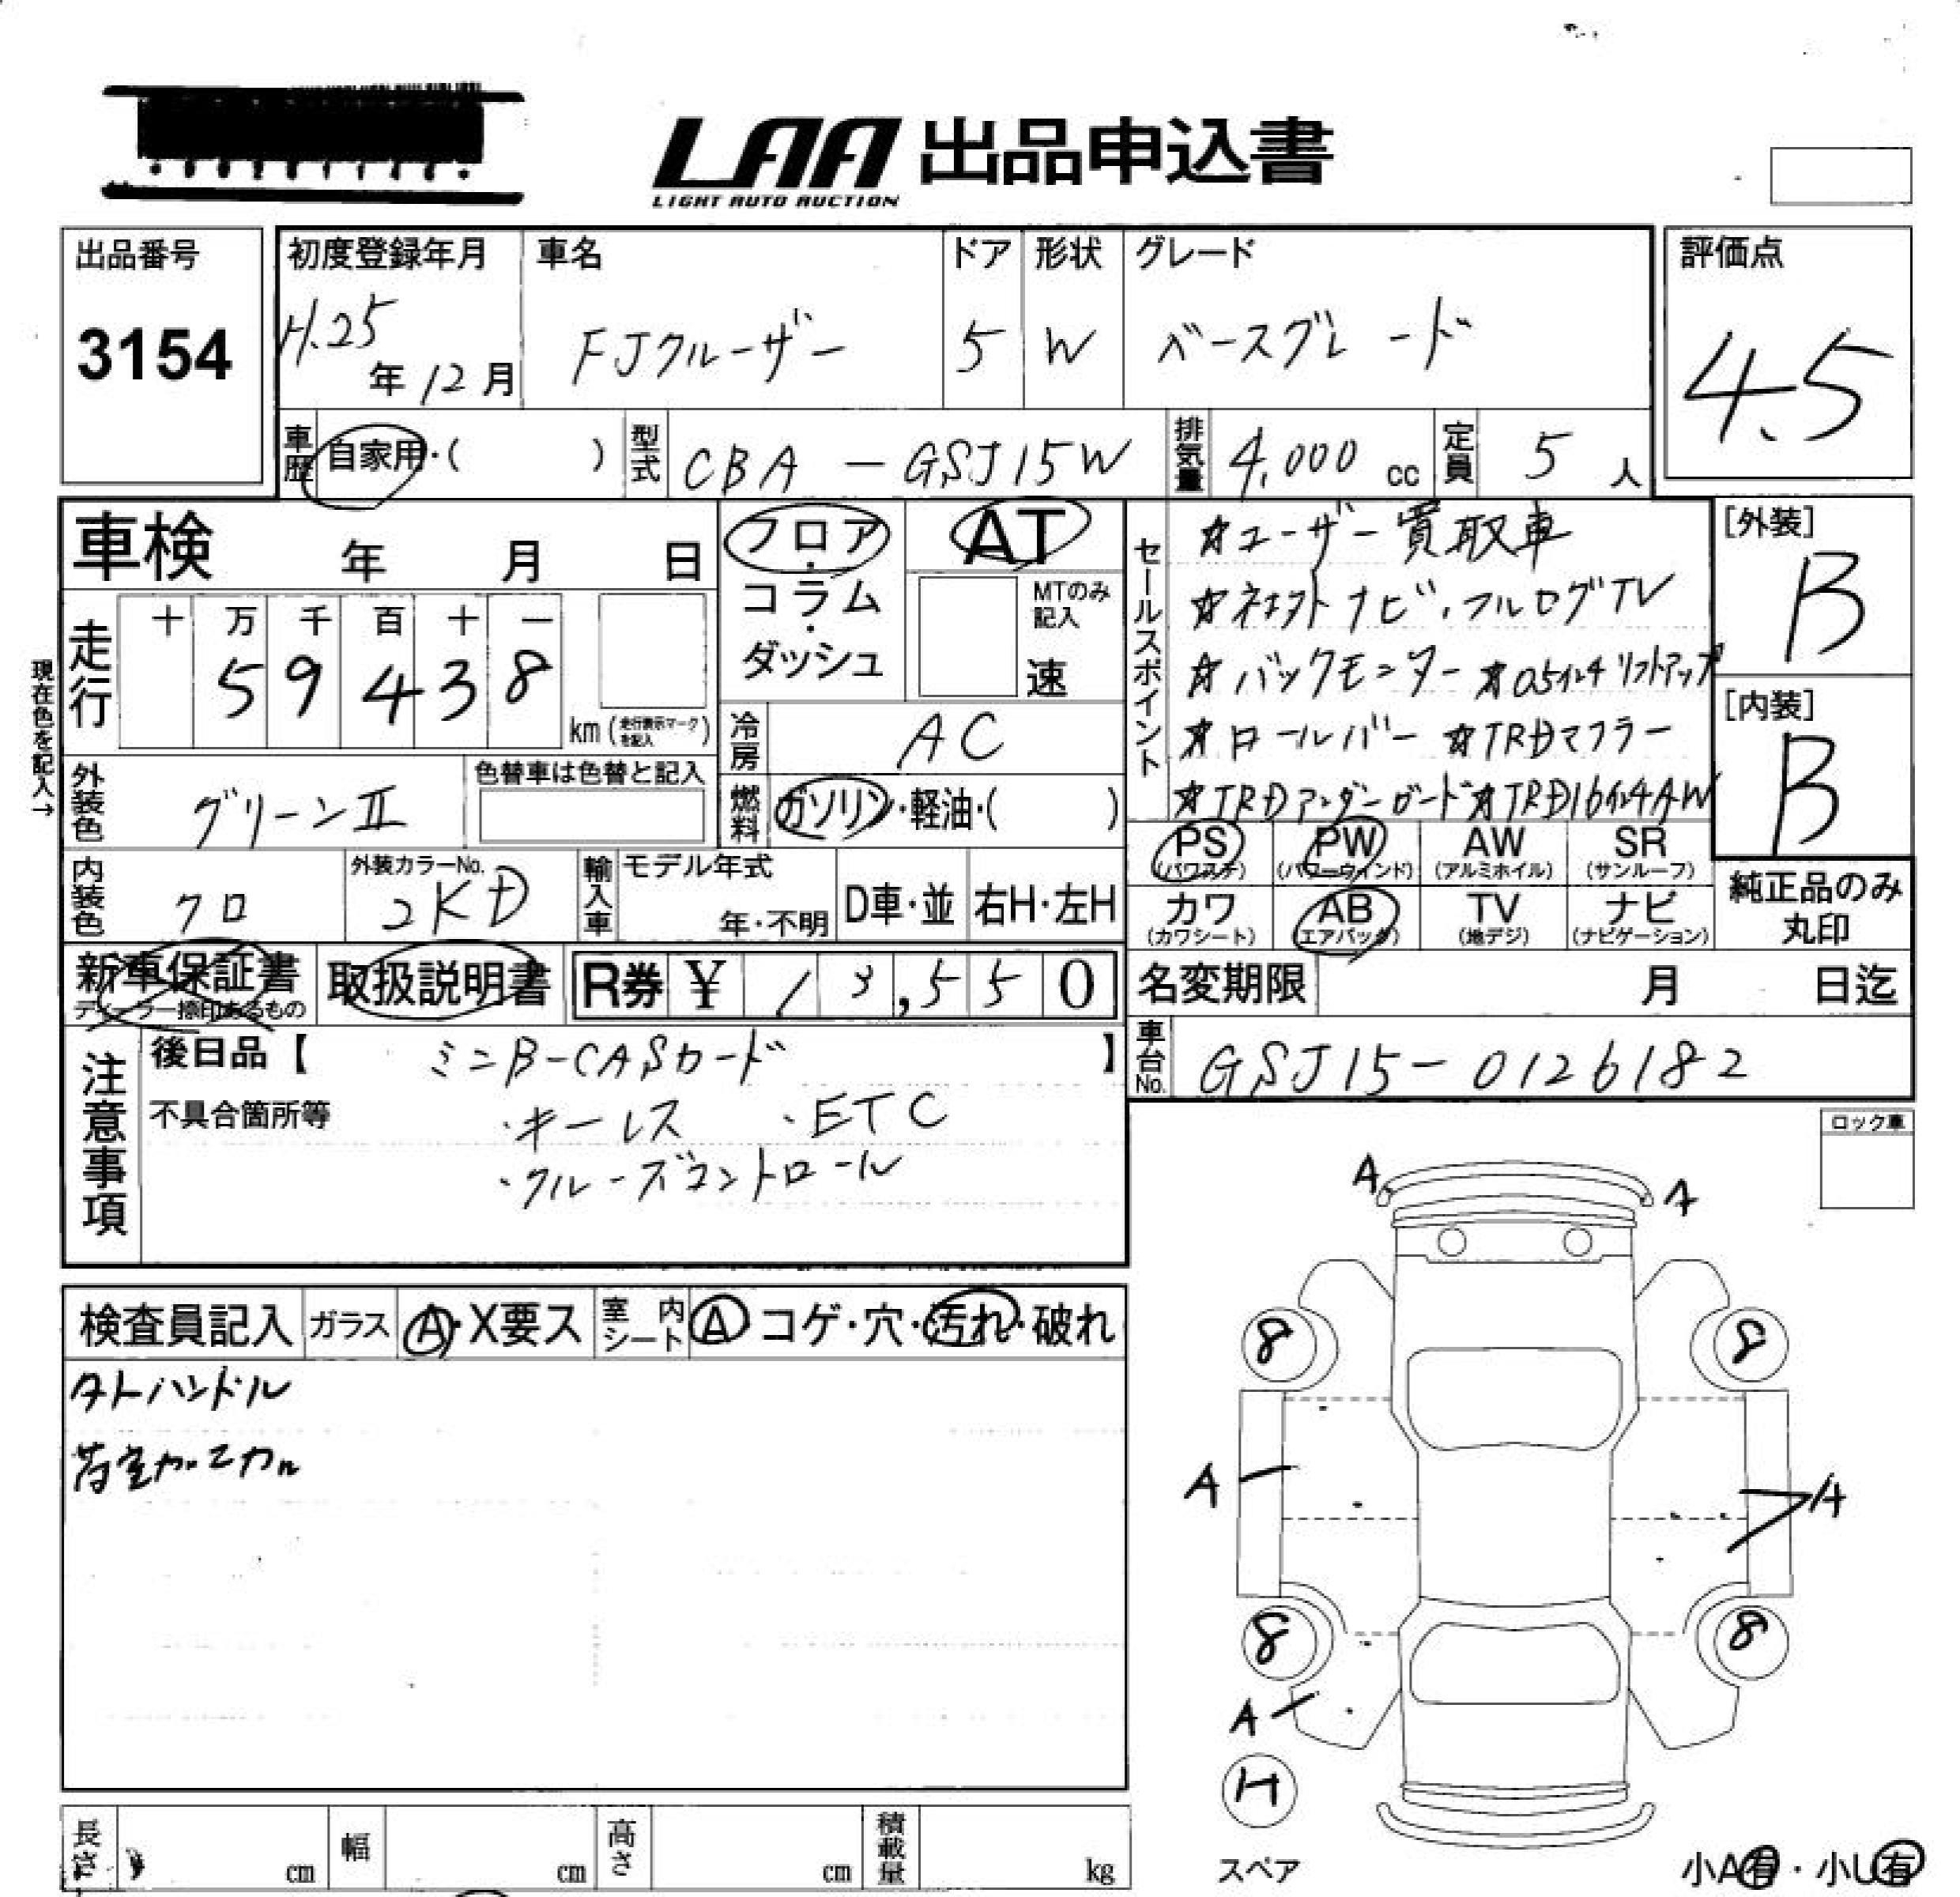 LAA 出品申込書
LIGHT AUTO AUCTION
出品番号
3154
初度登録年月
H.25
年 12 月
車名
FJクルーザー
ドア
5
形状
W
グレード
ベースグレード
評価点
4.5
車歴 自家用・( )
型式 CBA - GSJ15W
排気量 4,000 cc
定員 5 人
車検 年 月 日
フロア・
コラム・
ダッシュ
AT
MTのみ
記入
速
セールスポイント
☆ユーザー買取車
☆バックモニター ☆0.5インチリフトアップ
☆ロールバー ☆TRDマフラー
☆TRDアンダーガード☆TRD16インチAW
[外装]
B
[内装]
B
現在色を記入→
走行
十 万 千 百 十 一
5 9 4 3 8
km (走行表示マークを記入)
冷房 AC
外装色 グリーンⅡ
色替車は色替と記入
燃料 ガソリン・軽油・( )
PS
(パワステ)
PW
(パワーウインド)
AW
(アルミホイル)
SR
(サンルーフ)
カワ
(カワシート)
AB
エアバッグ)
TV
(地デジ)
ナビ
(ナビゲーション)
純正品のみ
丸印
内装色 クロ
外装カラーNo.
2KD
輸入車
モデル年式
年・不明
D車・並
右H・左H
新車保証書
ディーラー捺印あるもの
取扱説明書
R券 ¥ 13,550
名変期限 月 日迄
車台No. GSJ15-0126182
注意事項
後日品【 ミニB-CASカード 】
不具合箇所等
・キーレス ・ETC
・クルーズコントロール
ロック車
検査員記入
ガラス A・X要ス
室内シート A コゲ・穴・汚れ・破れ
A A
8 8
A A
8 8
A
H
スペア
小A有・小U有
長さ cm
幅 cm
高さ cm
積載量 kg